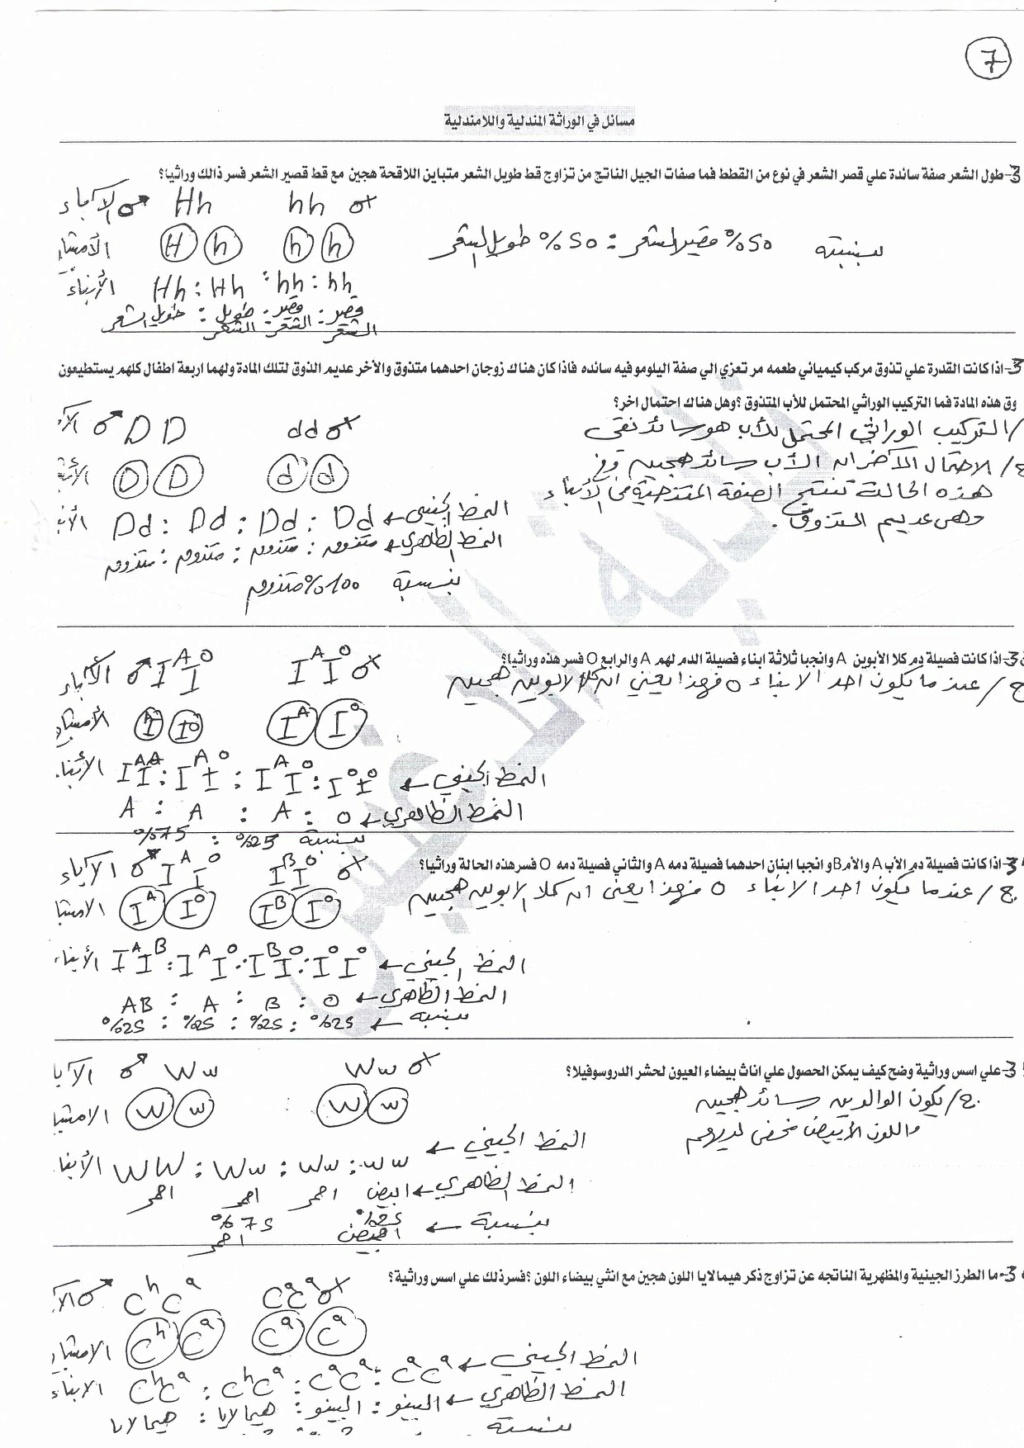 7
مسائل في الوراثة المندلية واللامندلية
3-طول الشعر صفة سائدة علي قصر الشعر في نوع من القطط فما صفات الجيل الناتج من تزاوج قط طويل الشعر متباين اللاقحة هجين مع قط قصير الشعر فسر ذالك وراثيا؟
الآباء ♂ Hh hh ♀
الأمشاج H h h h
بنسبة 50% قصير الشعر : 50% طويل الشعر
الأبناء Hh : Hh : hh : hh
طويل الشعر : طويل الشعر : قصير الشعر : قصير الشعر
3-اذا كانت القدرة علي تذوق مركب كيميائي طعمه مر تعزي الي صفة اليلومو فيه سائده فاذا كان هناك زوجان احدهما متذوق والأخر عديم الذوق لتلك المادة ولهما اربعة اطفال كلهم يستطيعون
وق هذه المادة فما التركيب الوراثي المحتمل للأب المتذوق ؟وهل هناك احتمال اخر؟
♂ DD dd ♀
D D d d
/ التركيب الوراثي المحتمل للأب هو سائد نقي
ج/ الاحتمال الاخر ان الأب سائد هجين وفي
هذه الحالة تنتج الصفة المتنحية في الأبناء
وهي عديم التذوق.
Dd : Dd : Dd : Dd ← النمط الجيني
متذوق : متذوق : متذوق : متذوق ← النمط الظاهري
بنسبة 100% متذوق
3-اذا كانت فصيلة دم كلا الأبوين A وانجبا ثلاثة ابناء فصيلة الدم لهم A والرابع O فسر هذه وراثيا؟
ج/ عندما يكون احد الابناء O فهذا يعني ان كلا الابوين هجين
الآباء ♂ IᴬIᴼ IᴬIᴼ ♀
الأمشاج Iᴬ Iᴼ Iᴬ Iᴼ
الأبناء IᴬIᴬ : IᴬIᴼ : IᴬIᴼ : IᴼIᴼ ← النمط الجيني
A : A : A : O ← النمط الظاهري
75% : 25% بنسبة
3-اذا كانت فصيلة دم الأب A والأم B و انجبا ابنان احدهما فصيلة دمه A والثاني فصيلة دمه O فسر هذه الحالة وراثيا؟
ج/ عندما يكون احد الابناء O فهذا يعني ان كلا الابوين هجين
الآباء ♂ IᴬIᴼ IᴮIᴼ ♀
الامشاج Iᴬ Iᴼ Iᴮ Iᴼ
الأبناء IᴬIᴮ : IᴬIᴼ : IᴮIᴼ : IᴼIᴼ ← النمط الجيني
AB : A : B : O ← النمط الظاهري
25% : 25% : 25% : 25% ← بنسبة
3-علي اسس وراثية وضح كيف يمكن الحصول علي اناث بيضاء العيون لحشر الدروسوفيلا؟
الآبا ♂ Ww Ww ♀
الامشاج W w W w
ج/ يكون الوالدين سائد هجين
واللون الأبيض مخفي لديهم
الأبناء WW : Ww : Ww : ww ← النمط الجيني
احمر احمر احمر ابيض ← النمط الظاهري
75% احمر 25% ابيض ← بنسبة
3-ما الطرز الجينية والمظهرية الناتجه عن تزاوج ذكر هيمالايا اللون هجين مع انثي بيضاء اللون ؟فسر ذلك علي اسس وراثية؟
♂ CʰCᵃ CᵃCᵃ ♀
الامشاج Cʰ Cᵃ Cᵃ Cᵃ
الابناء CʰCᵃ : CʰCᵃ : CᵃCᵃ : CᵃCᵃ ← النمط الجيني
هيمالايا : هيمالايا : البينو : البينو ← النمط الظاهري
بنسبة